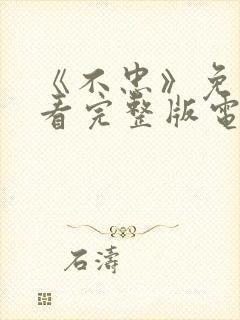 《不忠》免
看完整版電
石濤